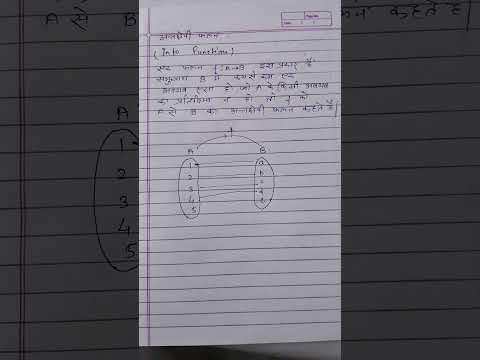 अन्तःक्षेपी फलन
(Into Function)
एक फलन f: A→B इस प्रकार है
समुच्चय B में कम से कम एक
अवयव ऐसा हो जो A के किसी अवयव
का प्रतिबिम्ब न हो तो f को
A से B का अन्तःक्षेपी फलन कहते हैं|
f
A B
1 a
2 b
3 c
4 d
5 e
A से B
कहते हैं|
A
1
2
3
4
5